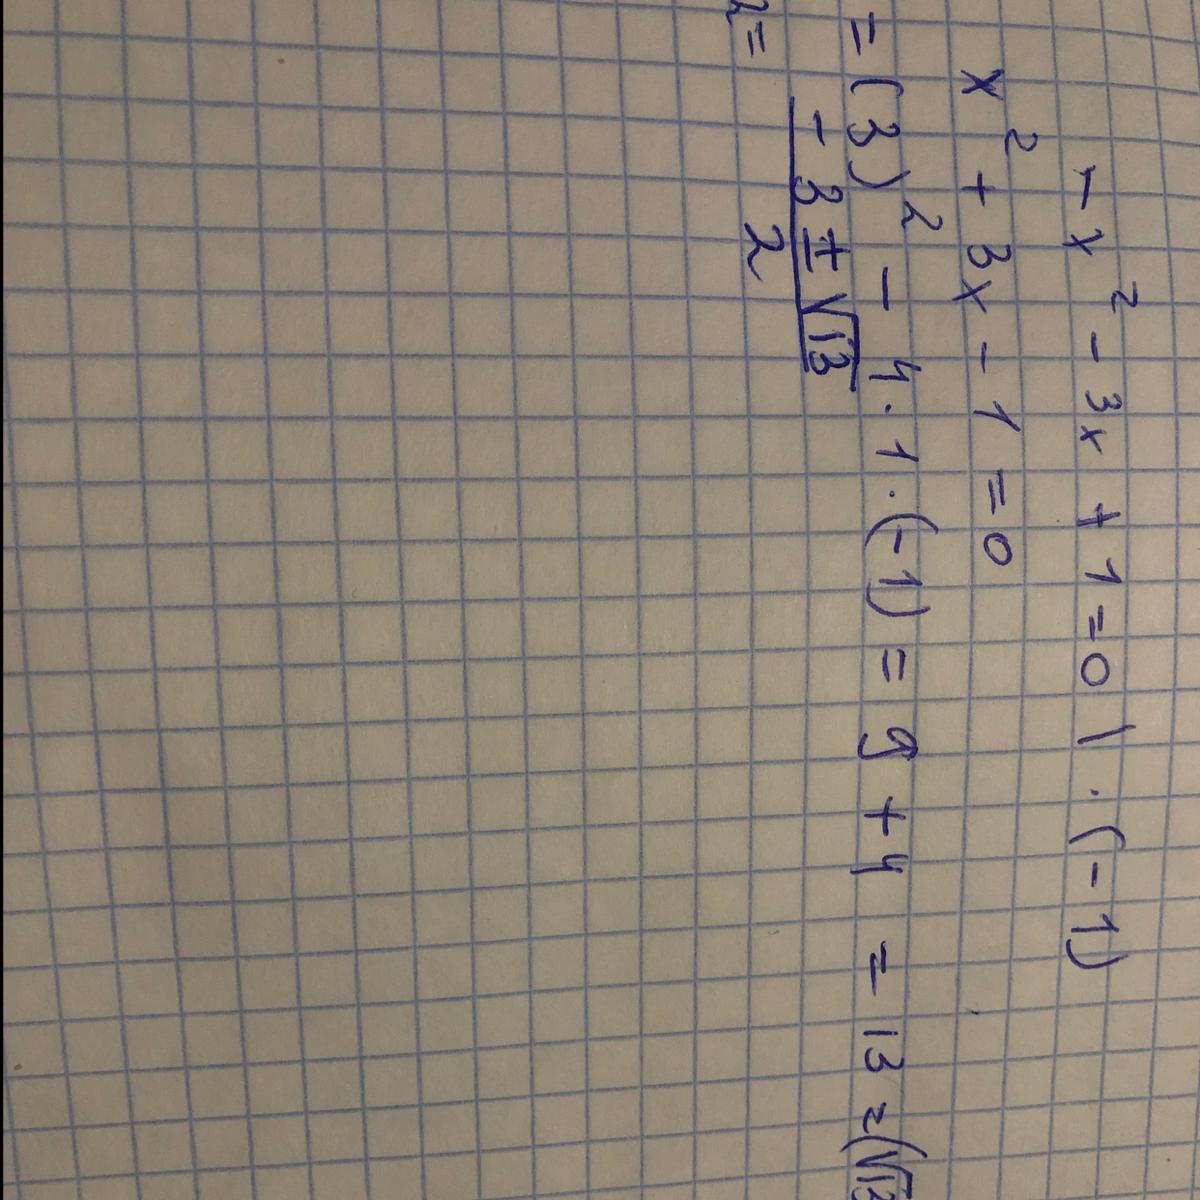 - x² - 3x + 1 = 0 | · (-1)
x² + 3x - 1 = 0
= (3)² - 4 · 1 · (-1) = 9 + 4 = 13 = (√13
2 = -3 ± √13 / 2